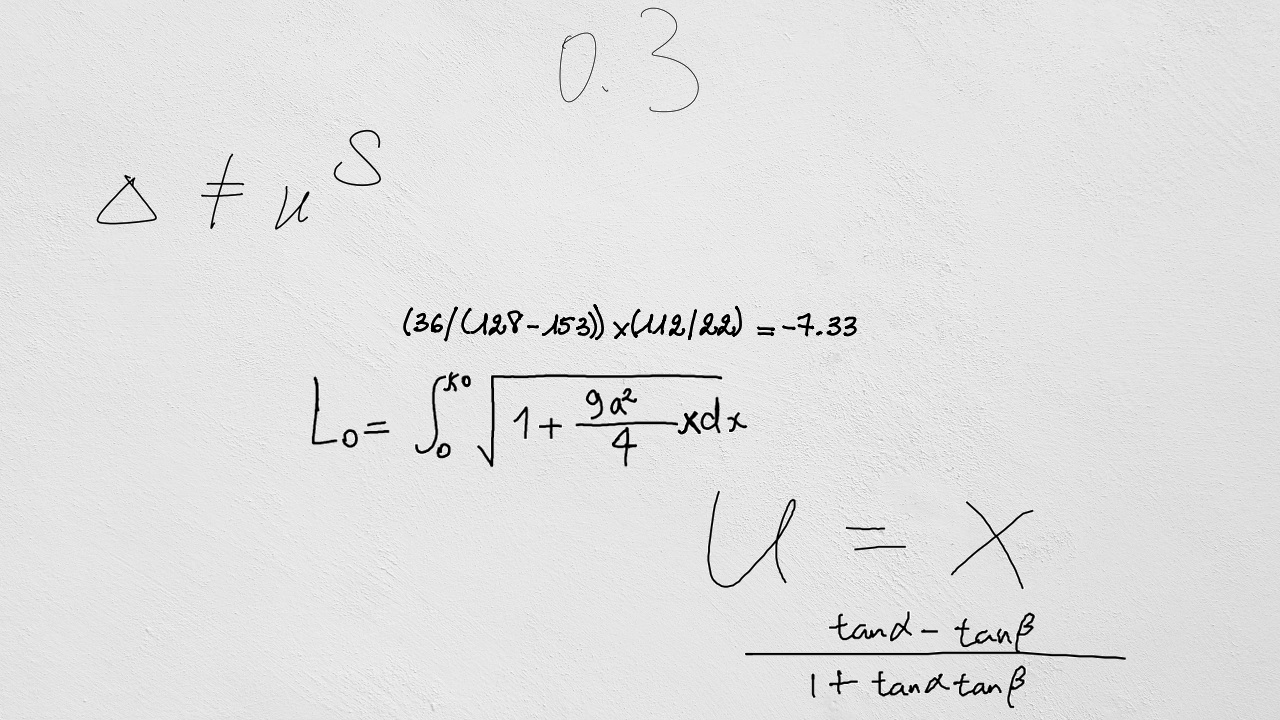 0.3
Δ ≠ μ^S
(36/(128-153))×(112/22) = -7.33
L₀ = ∫₀^{x₀} √(1 + 9a²/4 x dx
u = x
(tanα - tanβ)/(1 + tanα tanβ)